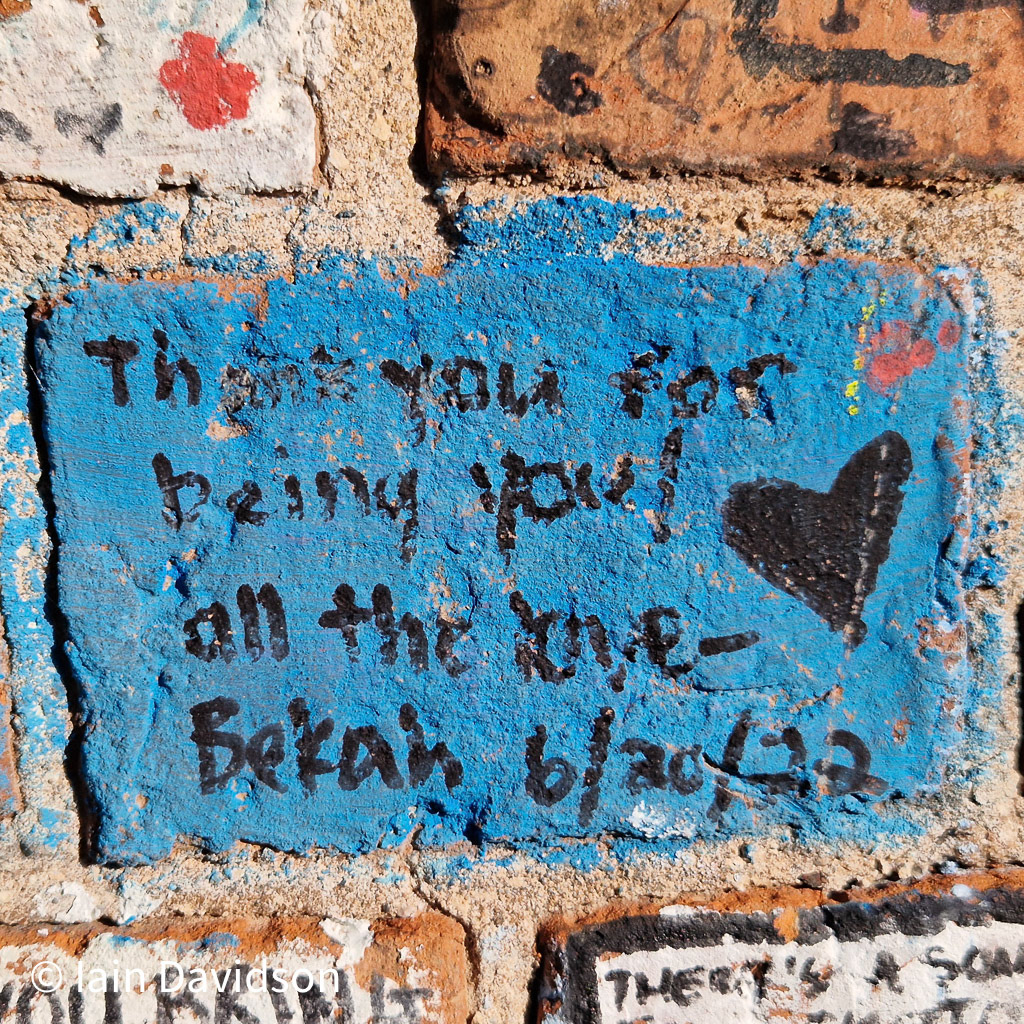 Thank you for
being you!
all the love –
Bekah 6/20/22
THERE'S A SOM
© Iain Davidson